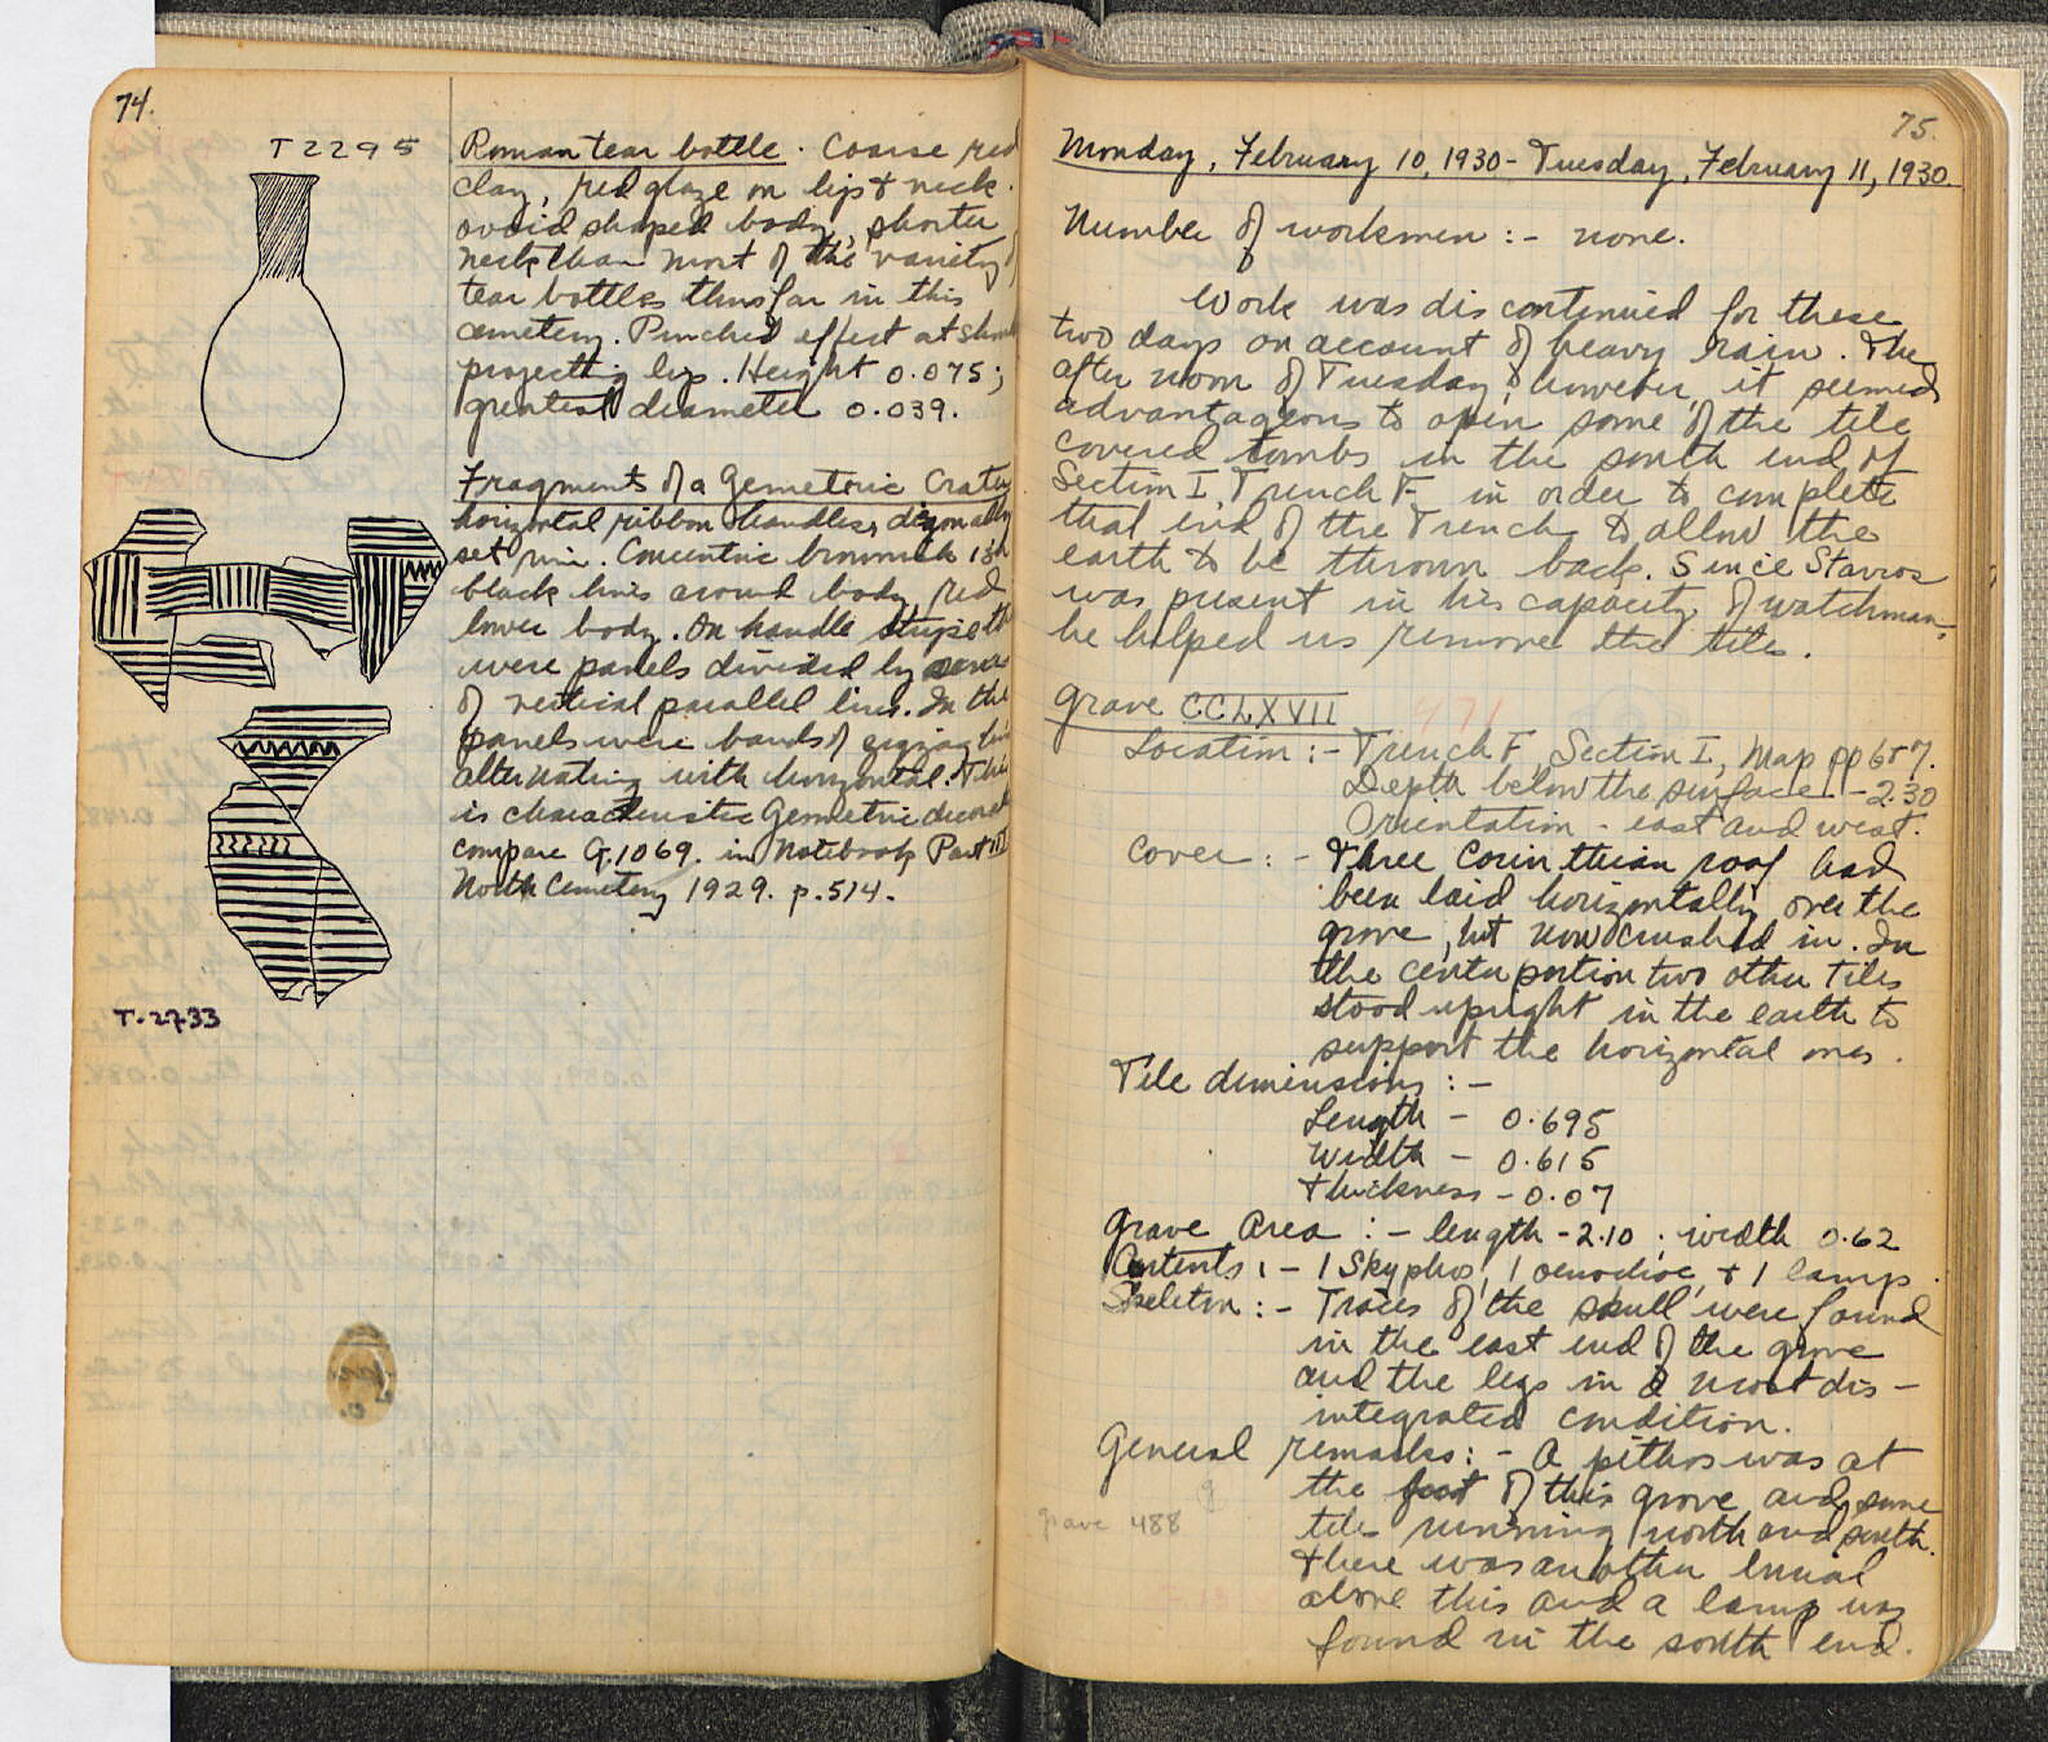 74.
T 2295
Roman tear bottle. Coarse red
clay, red glaze on lip & neck.
ovoid shaped body, shorter
neck than most of the variety of
tear bottles thus far in this
cemetery. Pinched effect at
projecting lip. Height 0.075;
greatest diameter 0.039.
Fragments of a Geometric Crater
horizontal ribbon handles, diagonally
set rim. Concentric brownish
black lines around body, red
lower body. On handle stripe
were panels divided by series
of vertical parallel lines. In the
panels were bands of zigzag
alternating with horizontal. This
is characteristic Geometric
compare G.1069. in Notebook Part III
North Cemetery 1929. p.514.
T-2733
75.
Monday, February 10, 1930 - Tuesday, February 11, 1930.
Number of workmen :- none.
Work was discontinued for these
two days on account of heavy rain. The
after noon of Tuesday, however, it seemed
advantageous to open some of the tile
covered tombs in the south end of
Section I, Trench F in order to complete
that end of the Trench & allow the
earth to be thrown back. Since Stavros
was present in his capacity of watchman,
he helped us remove the tiles.
Grave CCLXVII 471
Location :- Trench F, Section I, Map pp 6+7.
Depth below the surface - 2.30
Orientation - east and west.
Cover :- Three Corinthian roof had
been laid horizontally over the
grave, but now crushed in. In
the center portion two other tiles
stood upright in the earth to
support the horizontal ones.
Tile dimensions :-
Length - 0.695
Width - 0.615
Thickness - 0.07
Grave Area :- length - 2.10 ; width 0.62
Contents :- 1 Skyphos, 1 oenochoe, + 1 lamp.
Skeleton :- Traces of the skull were found
in the east end of the grave
and the legs in a most dis-
integrated condition.
General remarks :- A pithos was at
the foot of this grave and some
tile running north and south.
grave 488
There was another burial
above this and a lamp was
found in the south end.